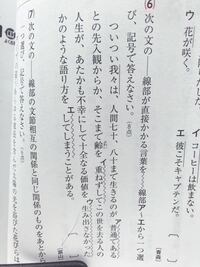 ウ 花が咲く。
イ コーヒーは飲まない。
エ 彼こそキャプテンだ。
⑹ 次の文の 線部が直接かかる言葉を〜〜線部ア〜エから一つ選
び、記号で答えなさい。
ついつい我々は、人間七十、八十まで生きるのが普通である
との先入観からか、そこまで齢を重ねずしてこの世を去る人の
人生が、あたかも不幸にして十全なる価値を生み出さなかった
かのような語り方をしてしまうことがある。
ア
イ
ウ
エ
⑺ 次の文の 線部の文節相互の関係と同じ関係のものをあとから
一つ選び、記号で答えなさい。